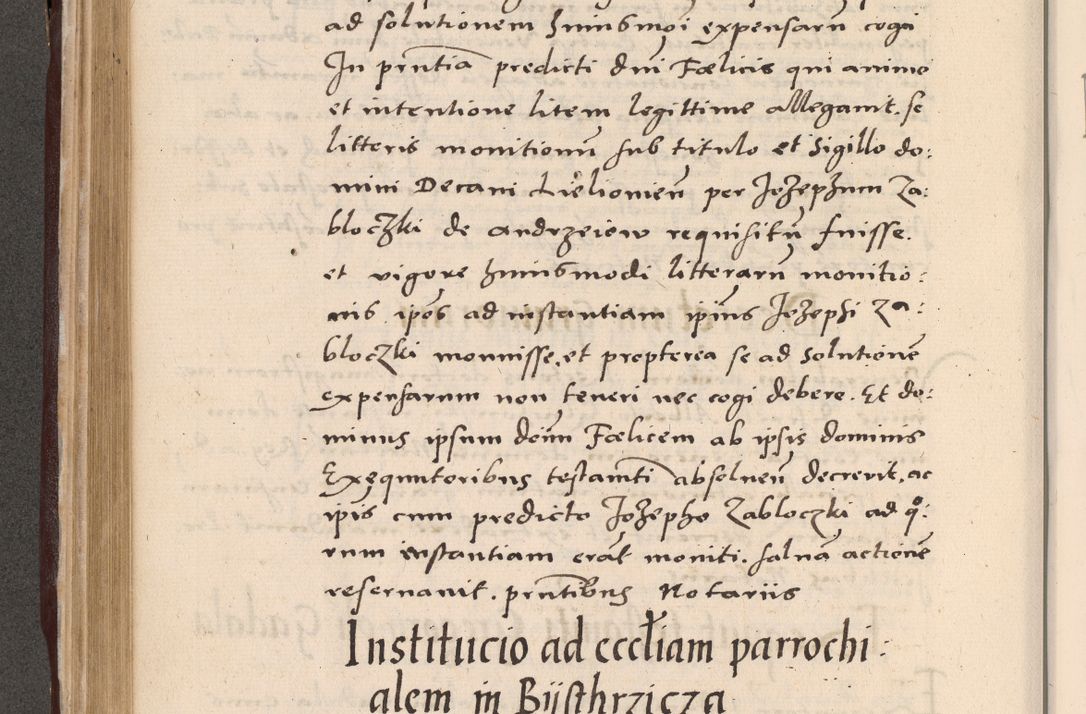 ad solutionem huiusmoi expensarũ cogi
In prntia predicti dni Fœlicis qui animo
et intentione litem legittime allegavit. se
litteris monitionũ sub titulo et Sigillo do:
mini Decani per Jozephum Za:
bloczki de andrzeiow requisitũ fuisse.
et vigore huiusmodi litterarũ monitio:
nis ipõs ad instantiam ipius Jozephi Za:
bloczki monuisse, et propterea se ad Solutionẽ
expensarum non teneri nec cogi debere. Et do:
minus ipsum dnm Fœlicem ab ipsis dominis
Exęqutoribus testamti absoluen decrevit, ac
ipis cum predicto Jozepho Zabloczki ad q̊:
rum instantiam erãt moniti. salvã actionẽ
reservavit. prntibus Notariis
Institucio ad eccłiam parrochi:
alem in Bÿsthrzicza